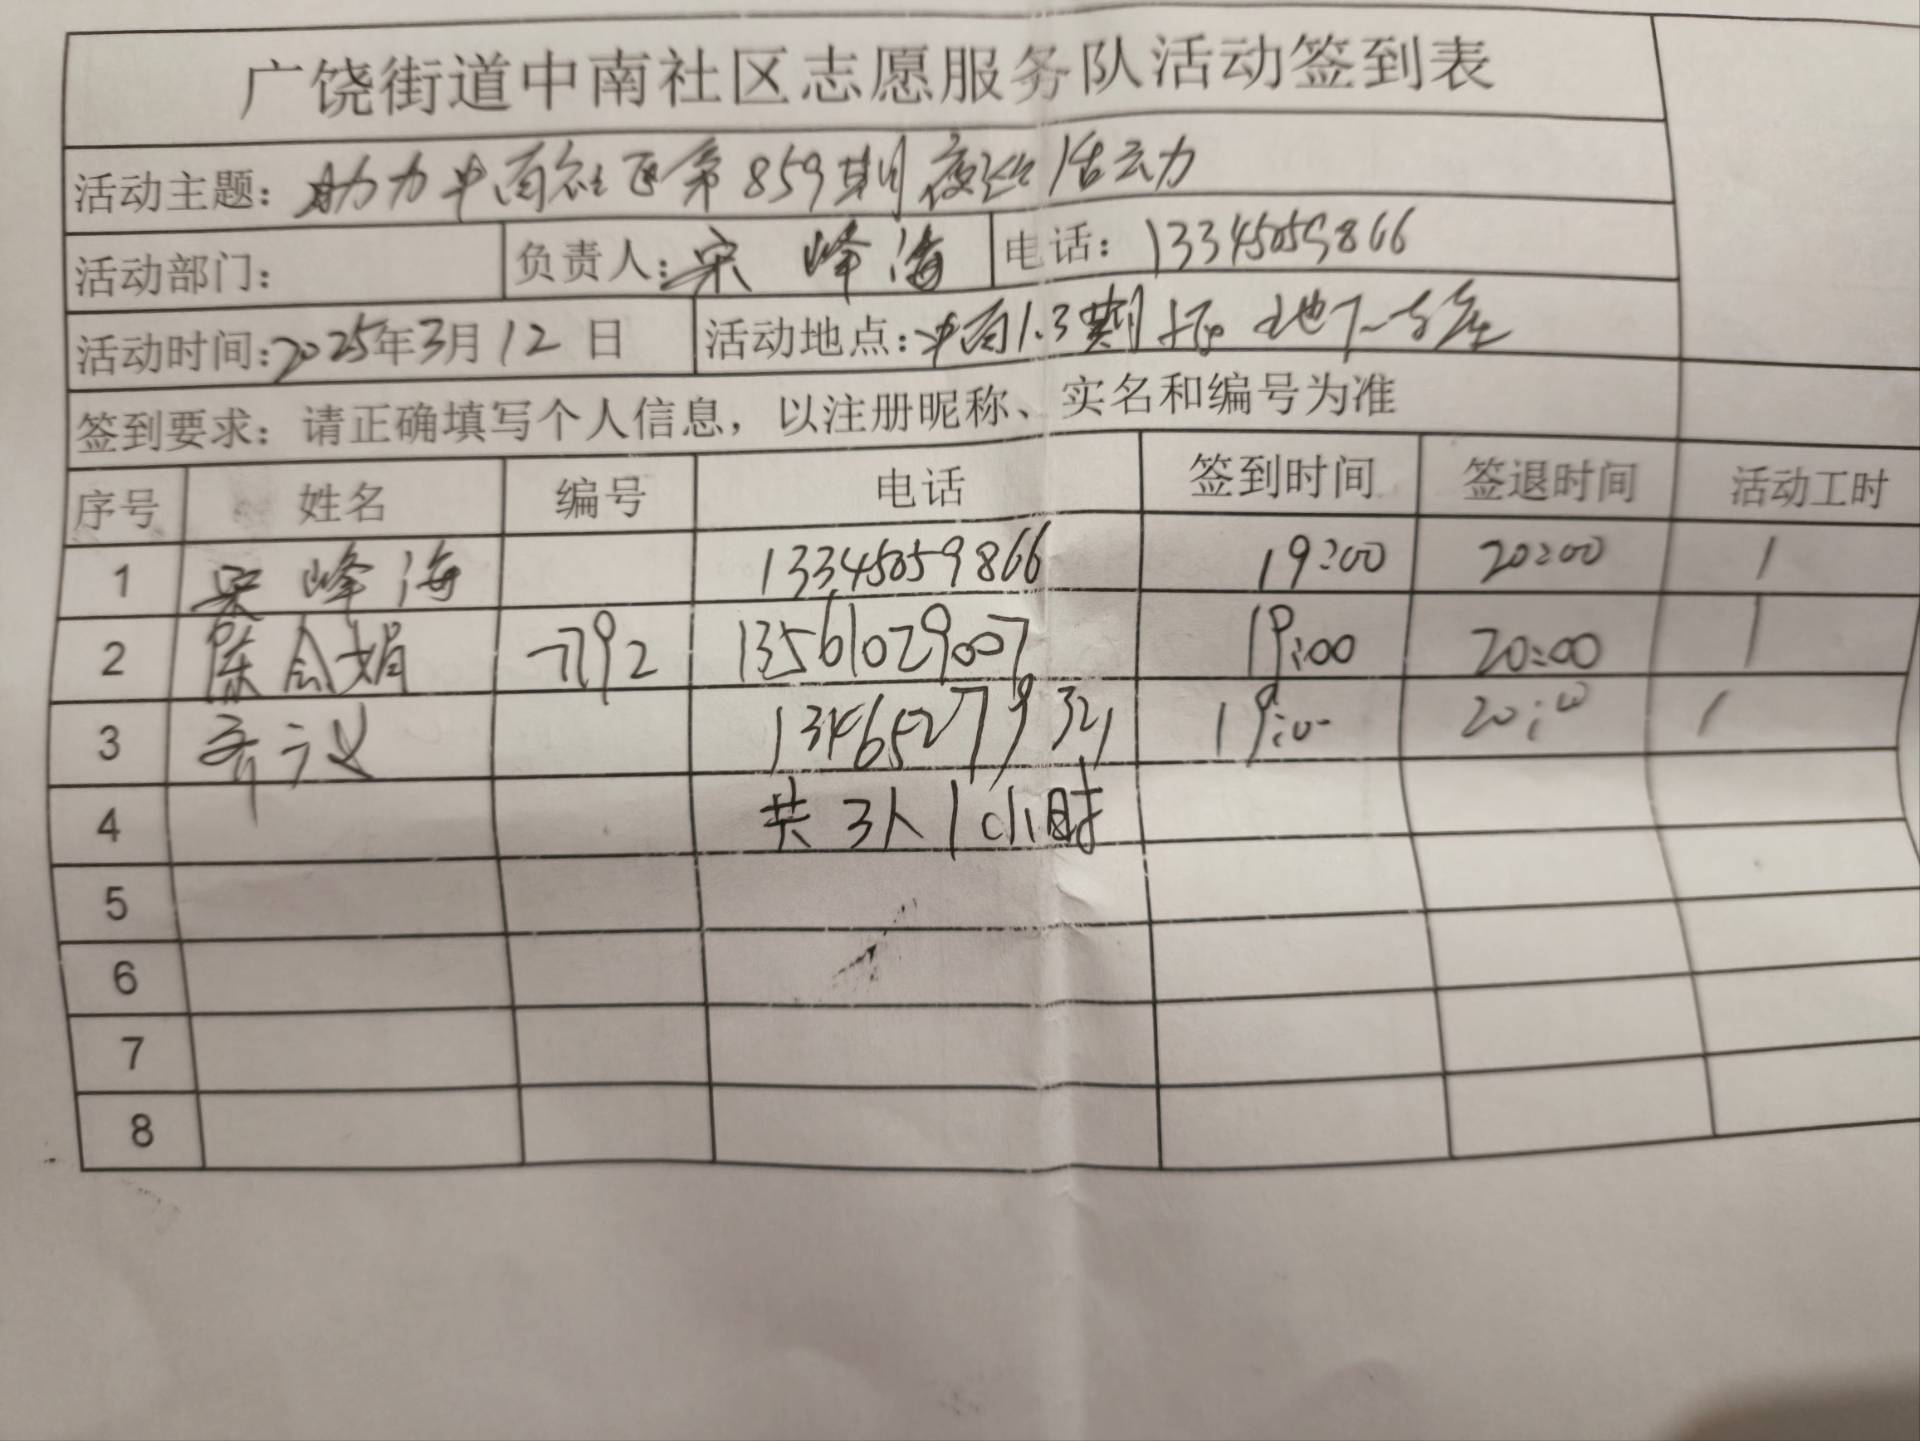 广饶街道中南社区志愿服务队活动签到表
活动主题：助力中南社区第859期夜巡活动
活动部门： 负责人：宋峰海 电话：13345059866
活动时间：2025年3月12日 活动地点：中南1.3期 地下
签到要求：请正确填写个人信息，以注册昵称、实名和编号为准
序号 姓名 编号 电话 签到时间 签退时间 活动工时
1 宋峰海 13345059866 19:00 20:00 1
2 陈会娟 7792 13561029007 19:00 20:00 1
3 13465279321 19:00 20:00 1
4 共3人1小时
5
6
7
8